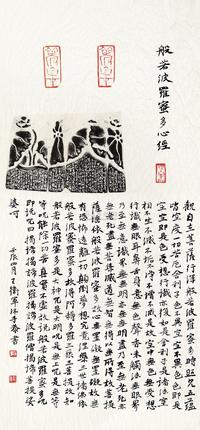 般若波羅蜜多心經
觀自在菩薩行深般若波羅蜜多時照見五蘊
皆空度一切苦厄舍利子色不異空空不異色色即是
空空即是色受想行識亦復如是舍利子是諸法空
相不生不滅不垢不淨不增不減是故空中無色無受想
行識無眼耳鼻舌身意無色聲香味觸法無眼界
乃至無意識界無無明亦無無明盡乃至無老死亦
無老死盡無苦集滅道無智亦無得以無所得故菩提
薩埵依般若波羅蜜多故心無罣礙無罣礙故無
有恐怖遠離顛倒夢想究竟涅槃三世諸佛依
般若波羅蜜多故得阿耨多羅三藐三菩提故知
般若波羅蜜多是大神咒是大明咒是無上咒是無
等等咒能除一切苦真實不虛故說般若波羅蜜多咒
即說咒曰揭諦揭諦波羅揭諦波羅僧揭諦菩提薩
婆訶 壬辰 書